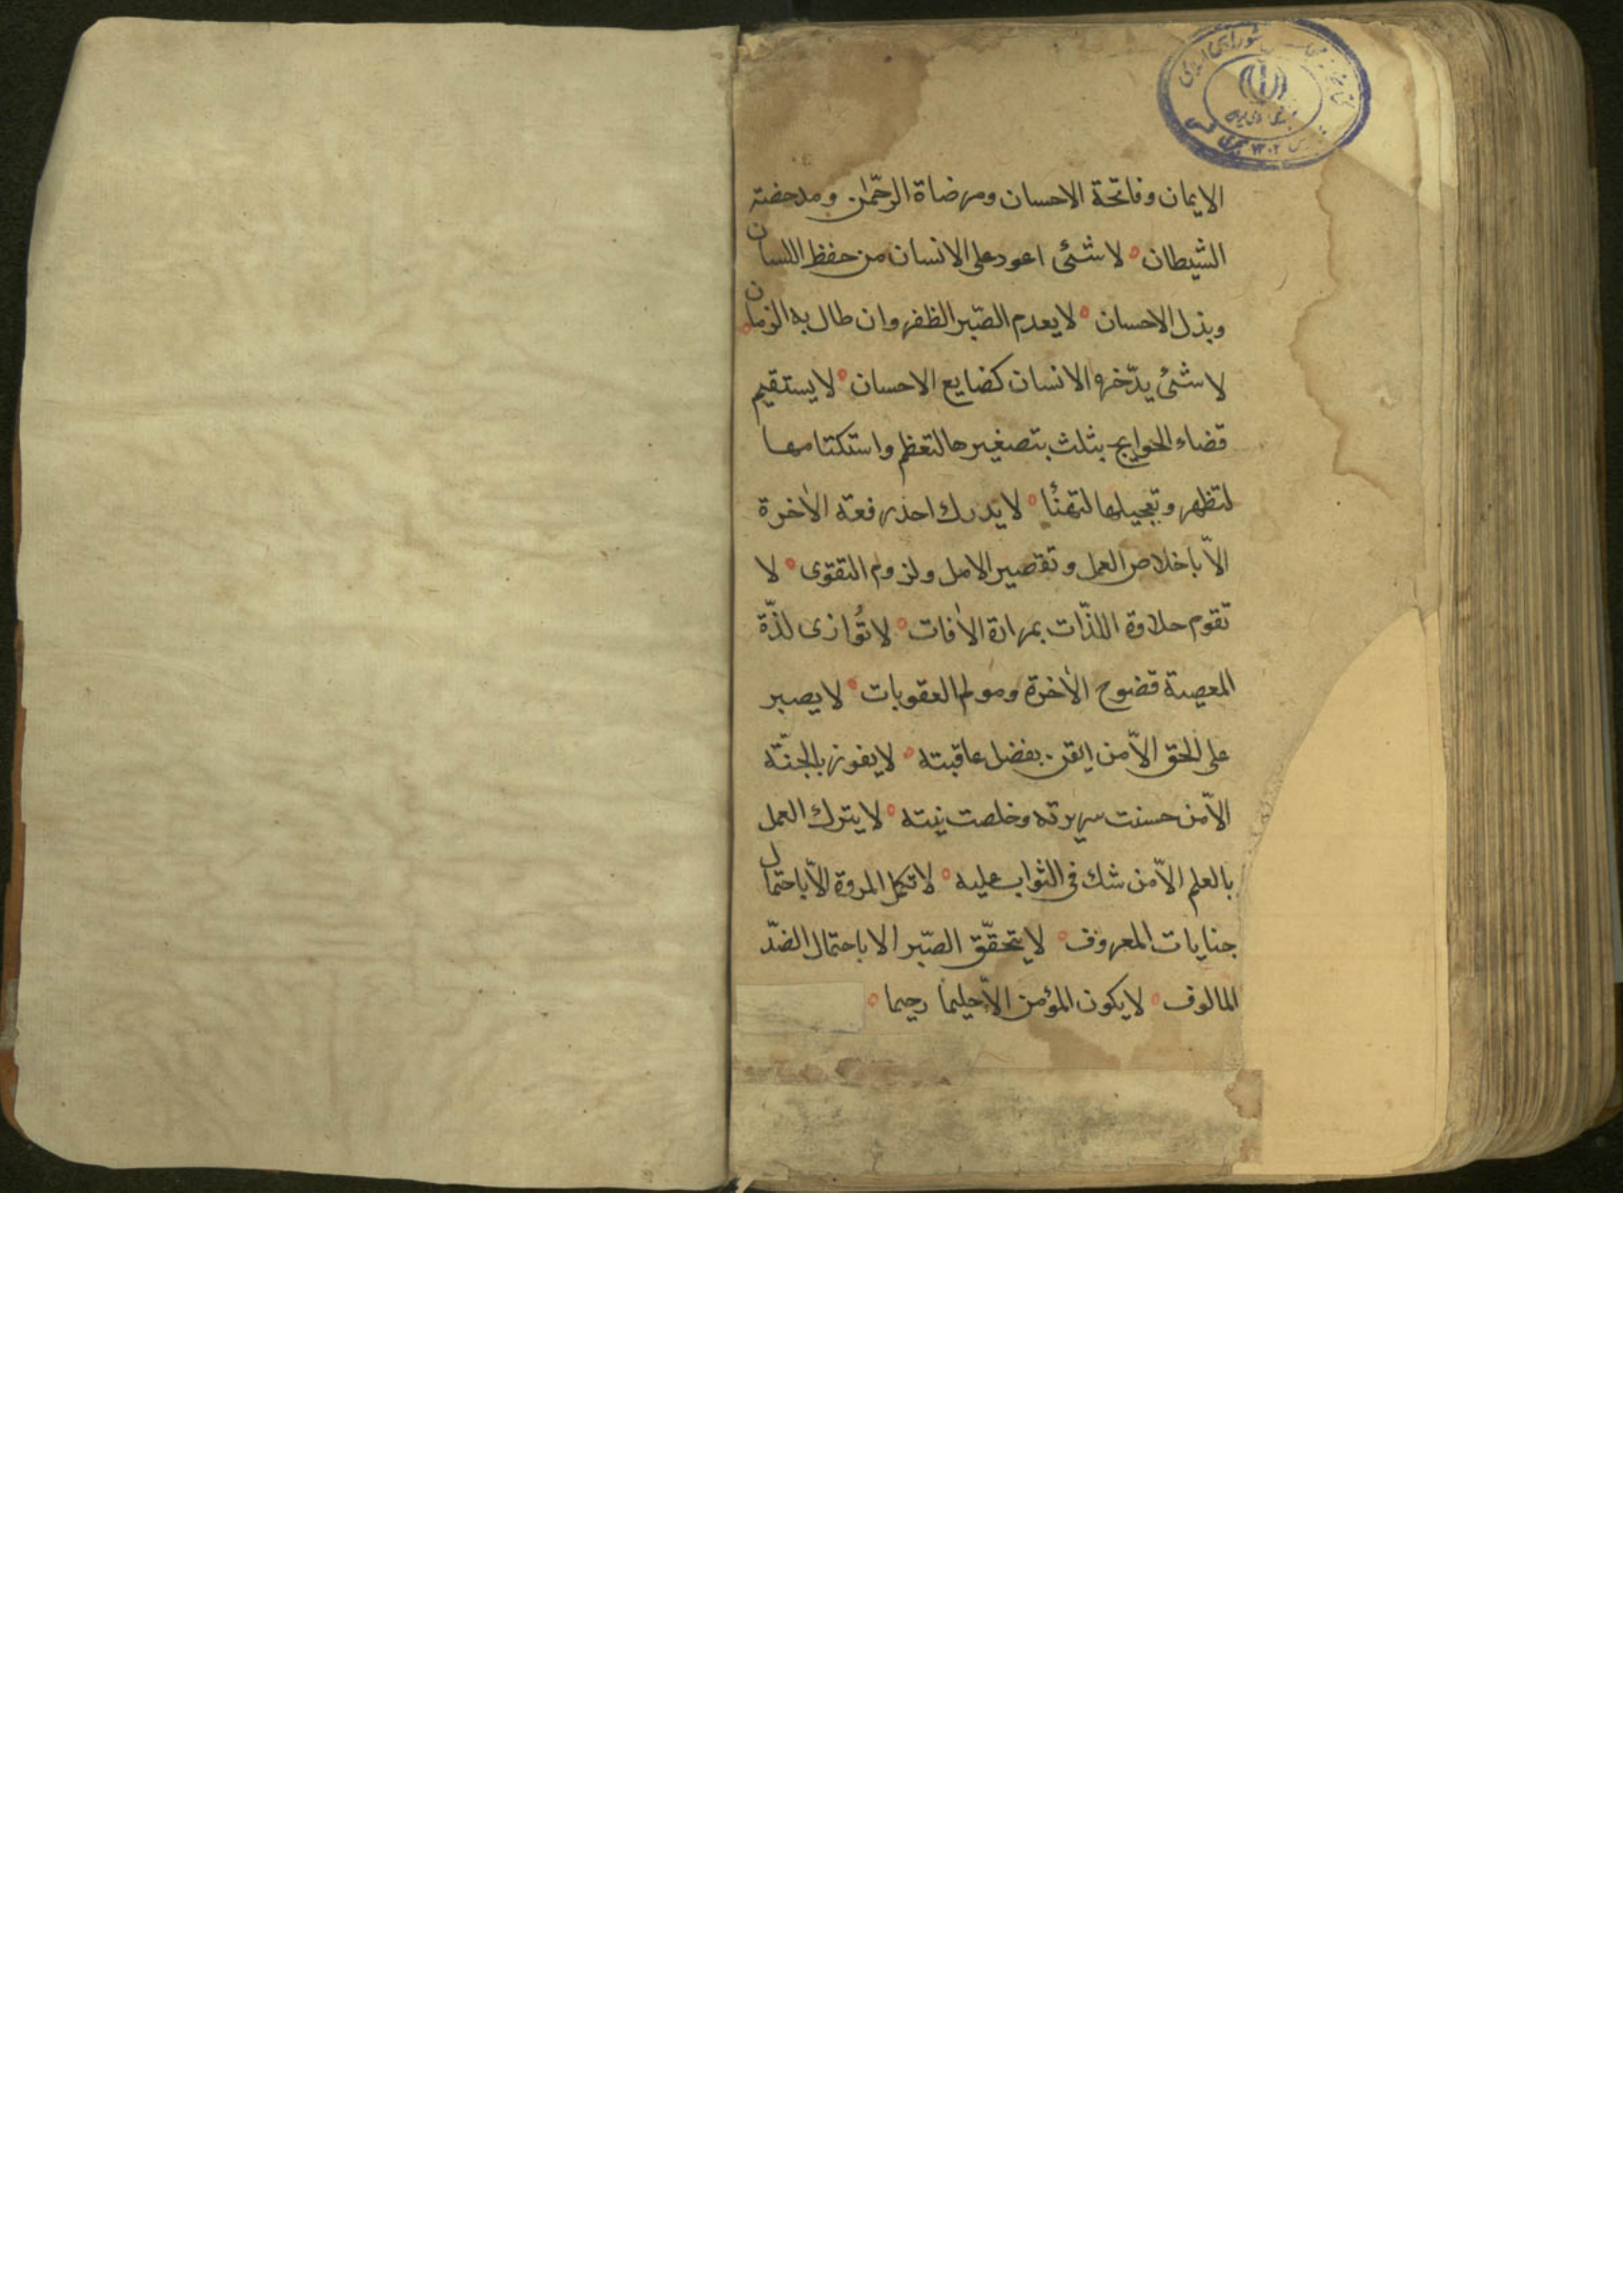 الايمان وفاتحة الاحسان ومرضاة الرحمٰن ومدحضة
الشيطان ه لا شئ اعود على الانسان من حفظ اللسان
وبذل الاحسان ه لا يعدم الصّبر الظفر وان طال به الزمان ه
لا شئ يدّخره الانسان كضايع الاحسان ه لا يستقيم
قضاء الحوايج بثلث بتصغيرها لتعظم واستكتامها
لتظهر وتعجيلها لتهنأ ه لا يدرك احد رفعة الاٰخرة
الاّ باخلاص العمل وتقصير الامل ولزوم التقوى ه لا
تقوم حلاوة اللذّات بمرارة الاٰفات ه لا تُوازى لذّة
المعصية فضوح الاٰخرة ومولم العقوبات ه لا يصبر
على الحق الاّ من ايقن بفضل عاقبته ه لا يفوز بالجنّة
الاّ من حسنت سريرته وخلصت نيته ه لا يترك العمل
بالعلم الاّ من شك فى الثواب عليه ه لا تكمل المروة الاّ باحتمال
جنايات المعروف ه لا يتحقّق الصّبر الا باحتمال الضدّ
المالوف ه لا يكون المؤمن الاّ حليما رحيما ه